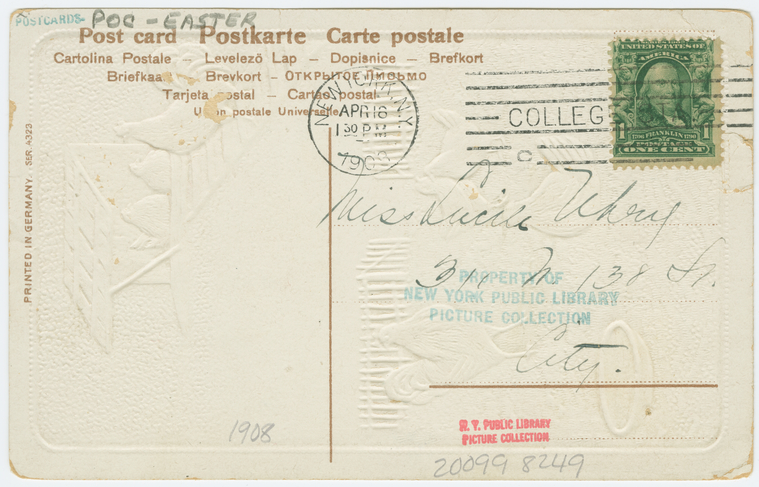 POSTCARDS- POC - EASTER
Post card Postkarte Carte postale
Cartolina Postale – Levelező Lap – Dopisnice – Brefkort
Briefkaa – Brevkort – ОТКРЫТОЕ ПИСЬМО
Tarjeta postal – Cartao postal
Union postale Universelle
NEW YORK, N.Y.
APR 18
1 30 P M
1908
COLLEG
C
UNITED STATES OF
AMERICA
1706 FRANKLIN 1790
POSTAGE
1 ONE CENT 1
PRINTED IN GERMANY. SER. 4323
Miss Lucile
138 St.
City.
PROPERTY OF
NEW YORK PUBLIC LIBRARY
PICTURE COLLECTION
1908
N. Y. PUBLIC LIBRARY
PICTURE COLLECTION
20099 8249